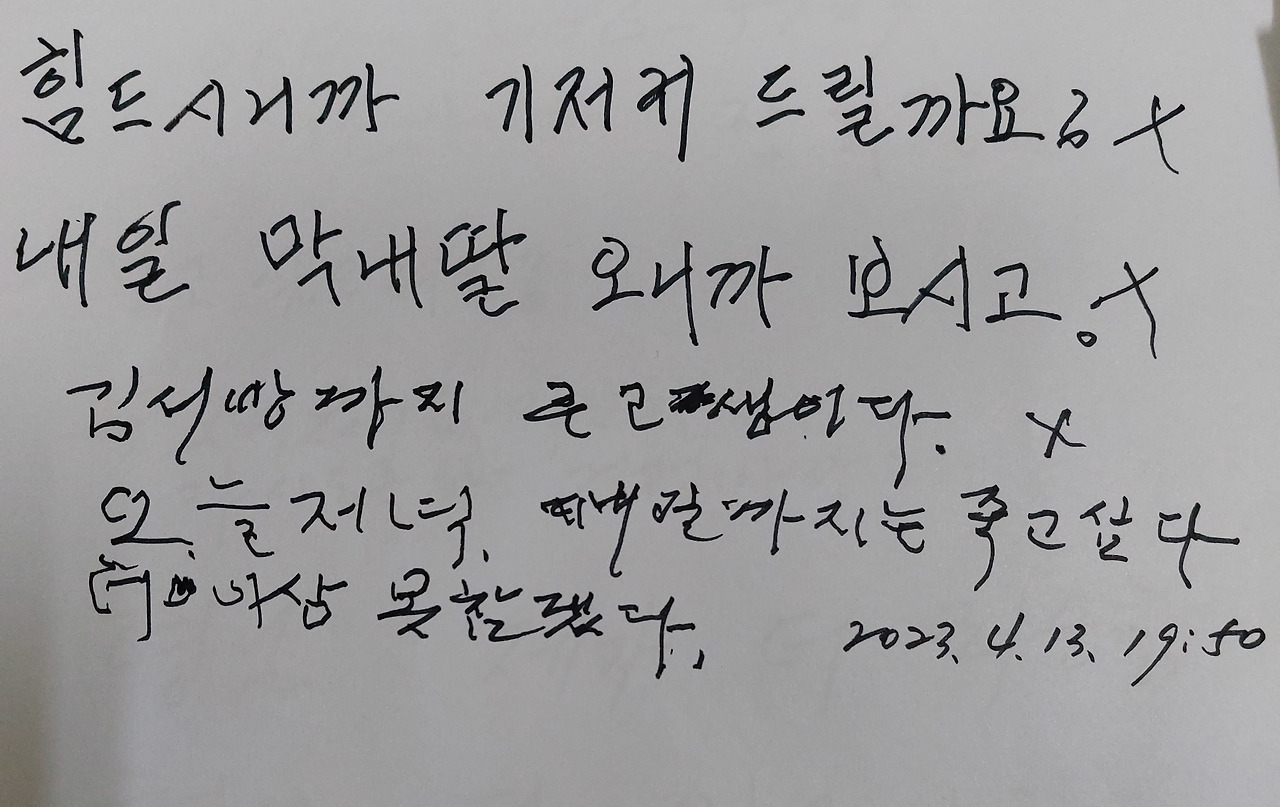 힘드시니까 기저귀 드릴까요? X
내일 막내딸 오니까 보시고. X
김서방까지 큰 고생이다. X
오늘저녁, 내일까지는 죽고싶다
더 이상 못참겠다.
2023. 4. 13. 19:50